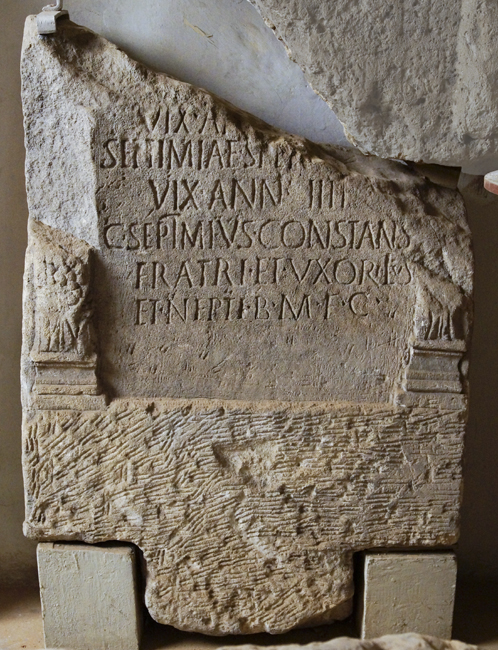 VIX·A
SEPTIMIAE
VIX ANN IIII
C·SEPTIMIVS CONSTANS
FRATRI·ET·VXORI·
ET·NEPTI·B·M·F·C